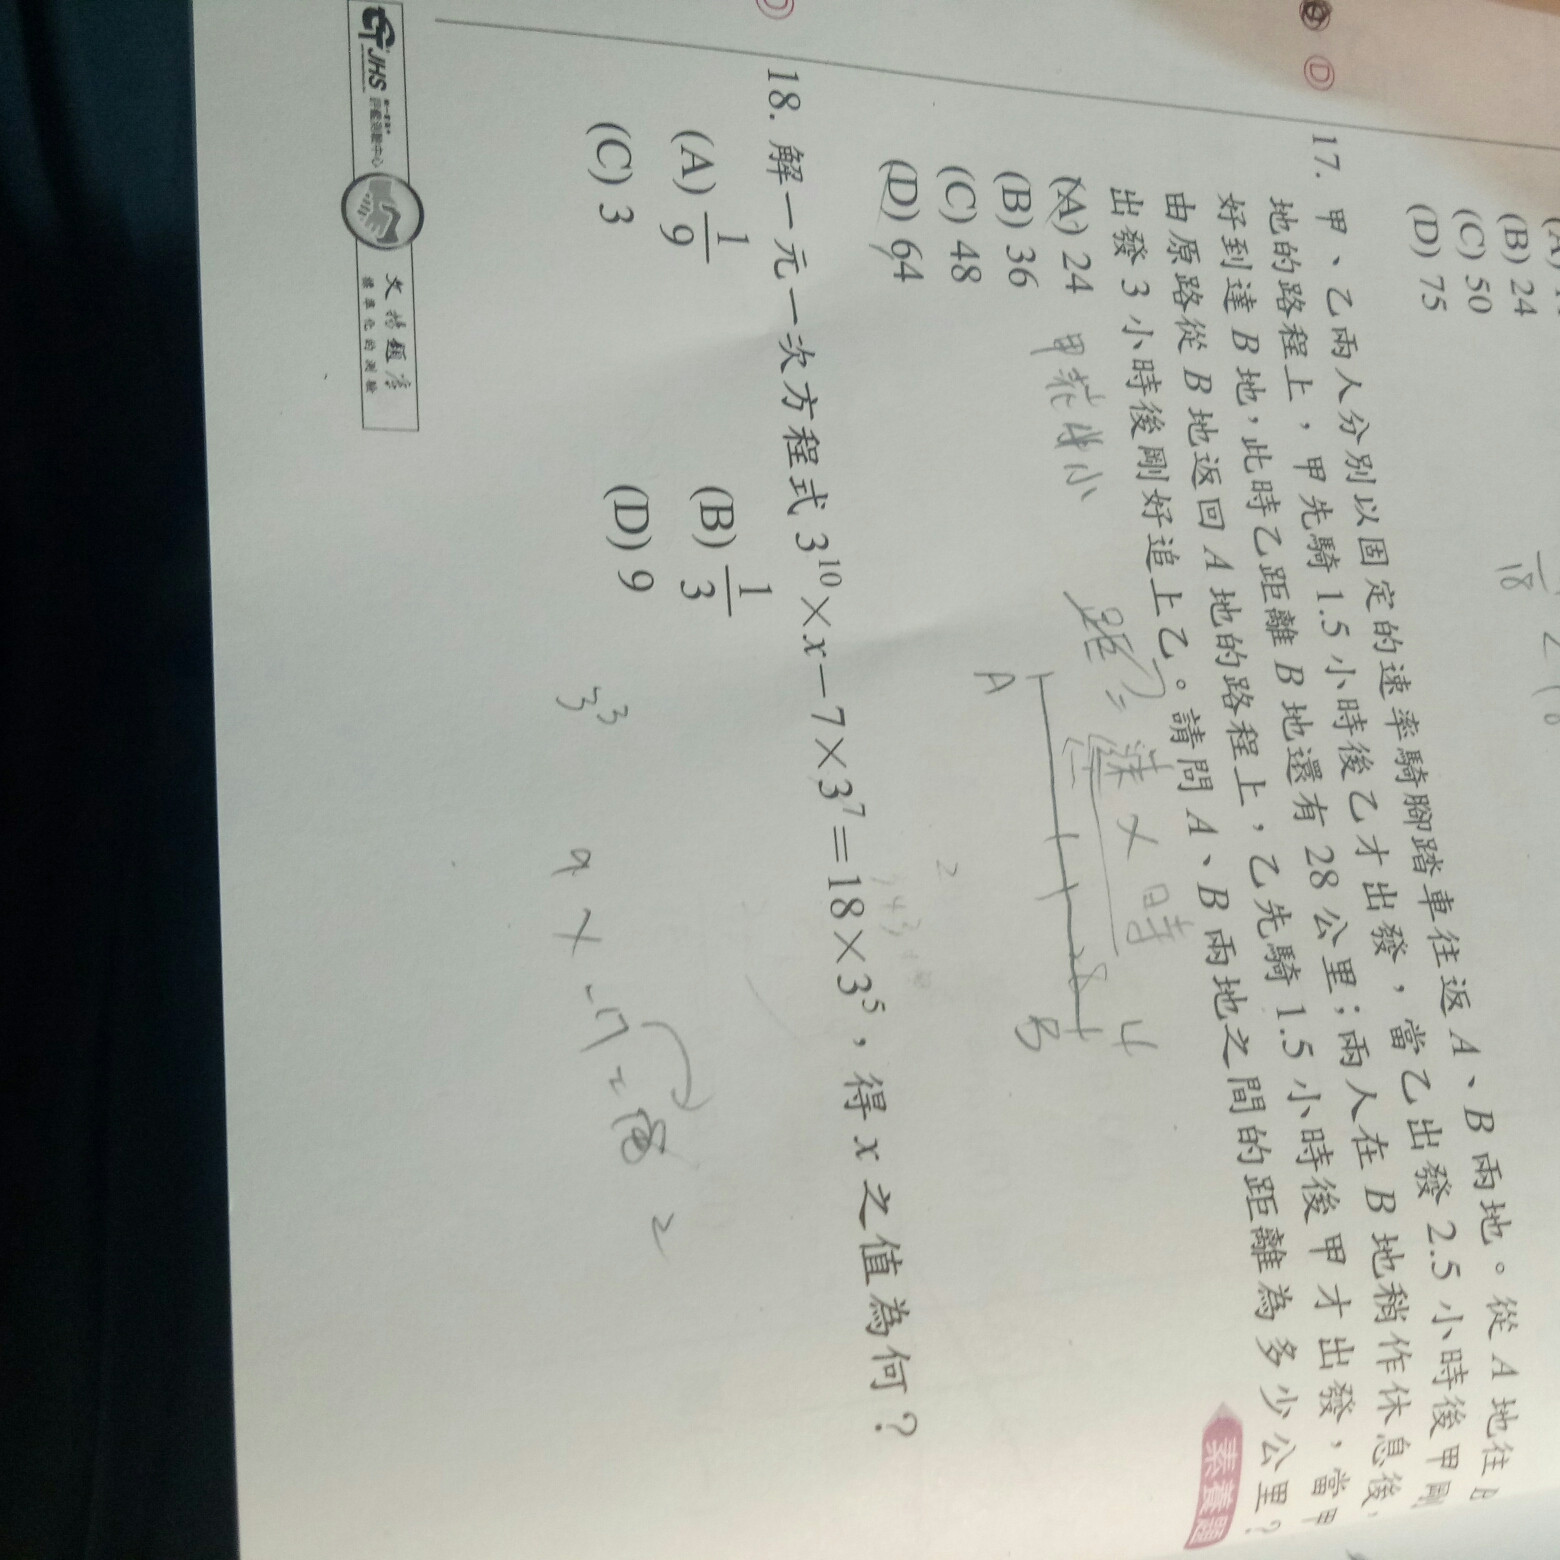 (B) 24
(C) 50
(D) 75
D
17. 甲、乙兩人分別以固定的速率騎腳踏車往返 A、B 兩地。從 A 地往 B
地的路程上，甲先騎 1.5 小時後乙才出發，當乙出發 2.5 小時後甲剛
好到達 B 地，此時乙距離 B 地還有 28 公里；兩人在 B 地稍作休息後，
由原路從 B 地返回 A 地的路程上，乙先騎 1.5 小時後甲才出發，當甲
出發 3 小時後剛好追上乙。請問 A、B 兩地之間的距離為多少公里？
素養題
(A) 24
(B) 36
(C) 48
(D) 64
甲花 小
距 = 速 × 時
A 28 B
4
18. 解一元一次方程式 3¹⁰×x－7×3⁷＝18×3⁵，得 x 之值為何？
(A) 1/9 (B) 1/3
(C) 3 (D) 9
3³
9 x -7 = 18 2
JHS
評量測驗中心
文揚題庫
標準化的測驗